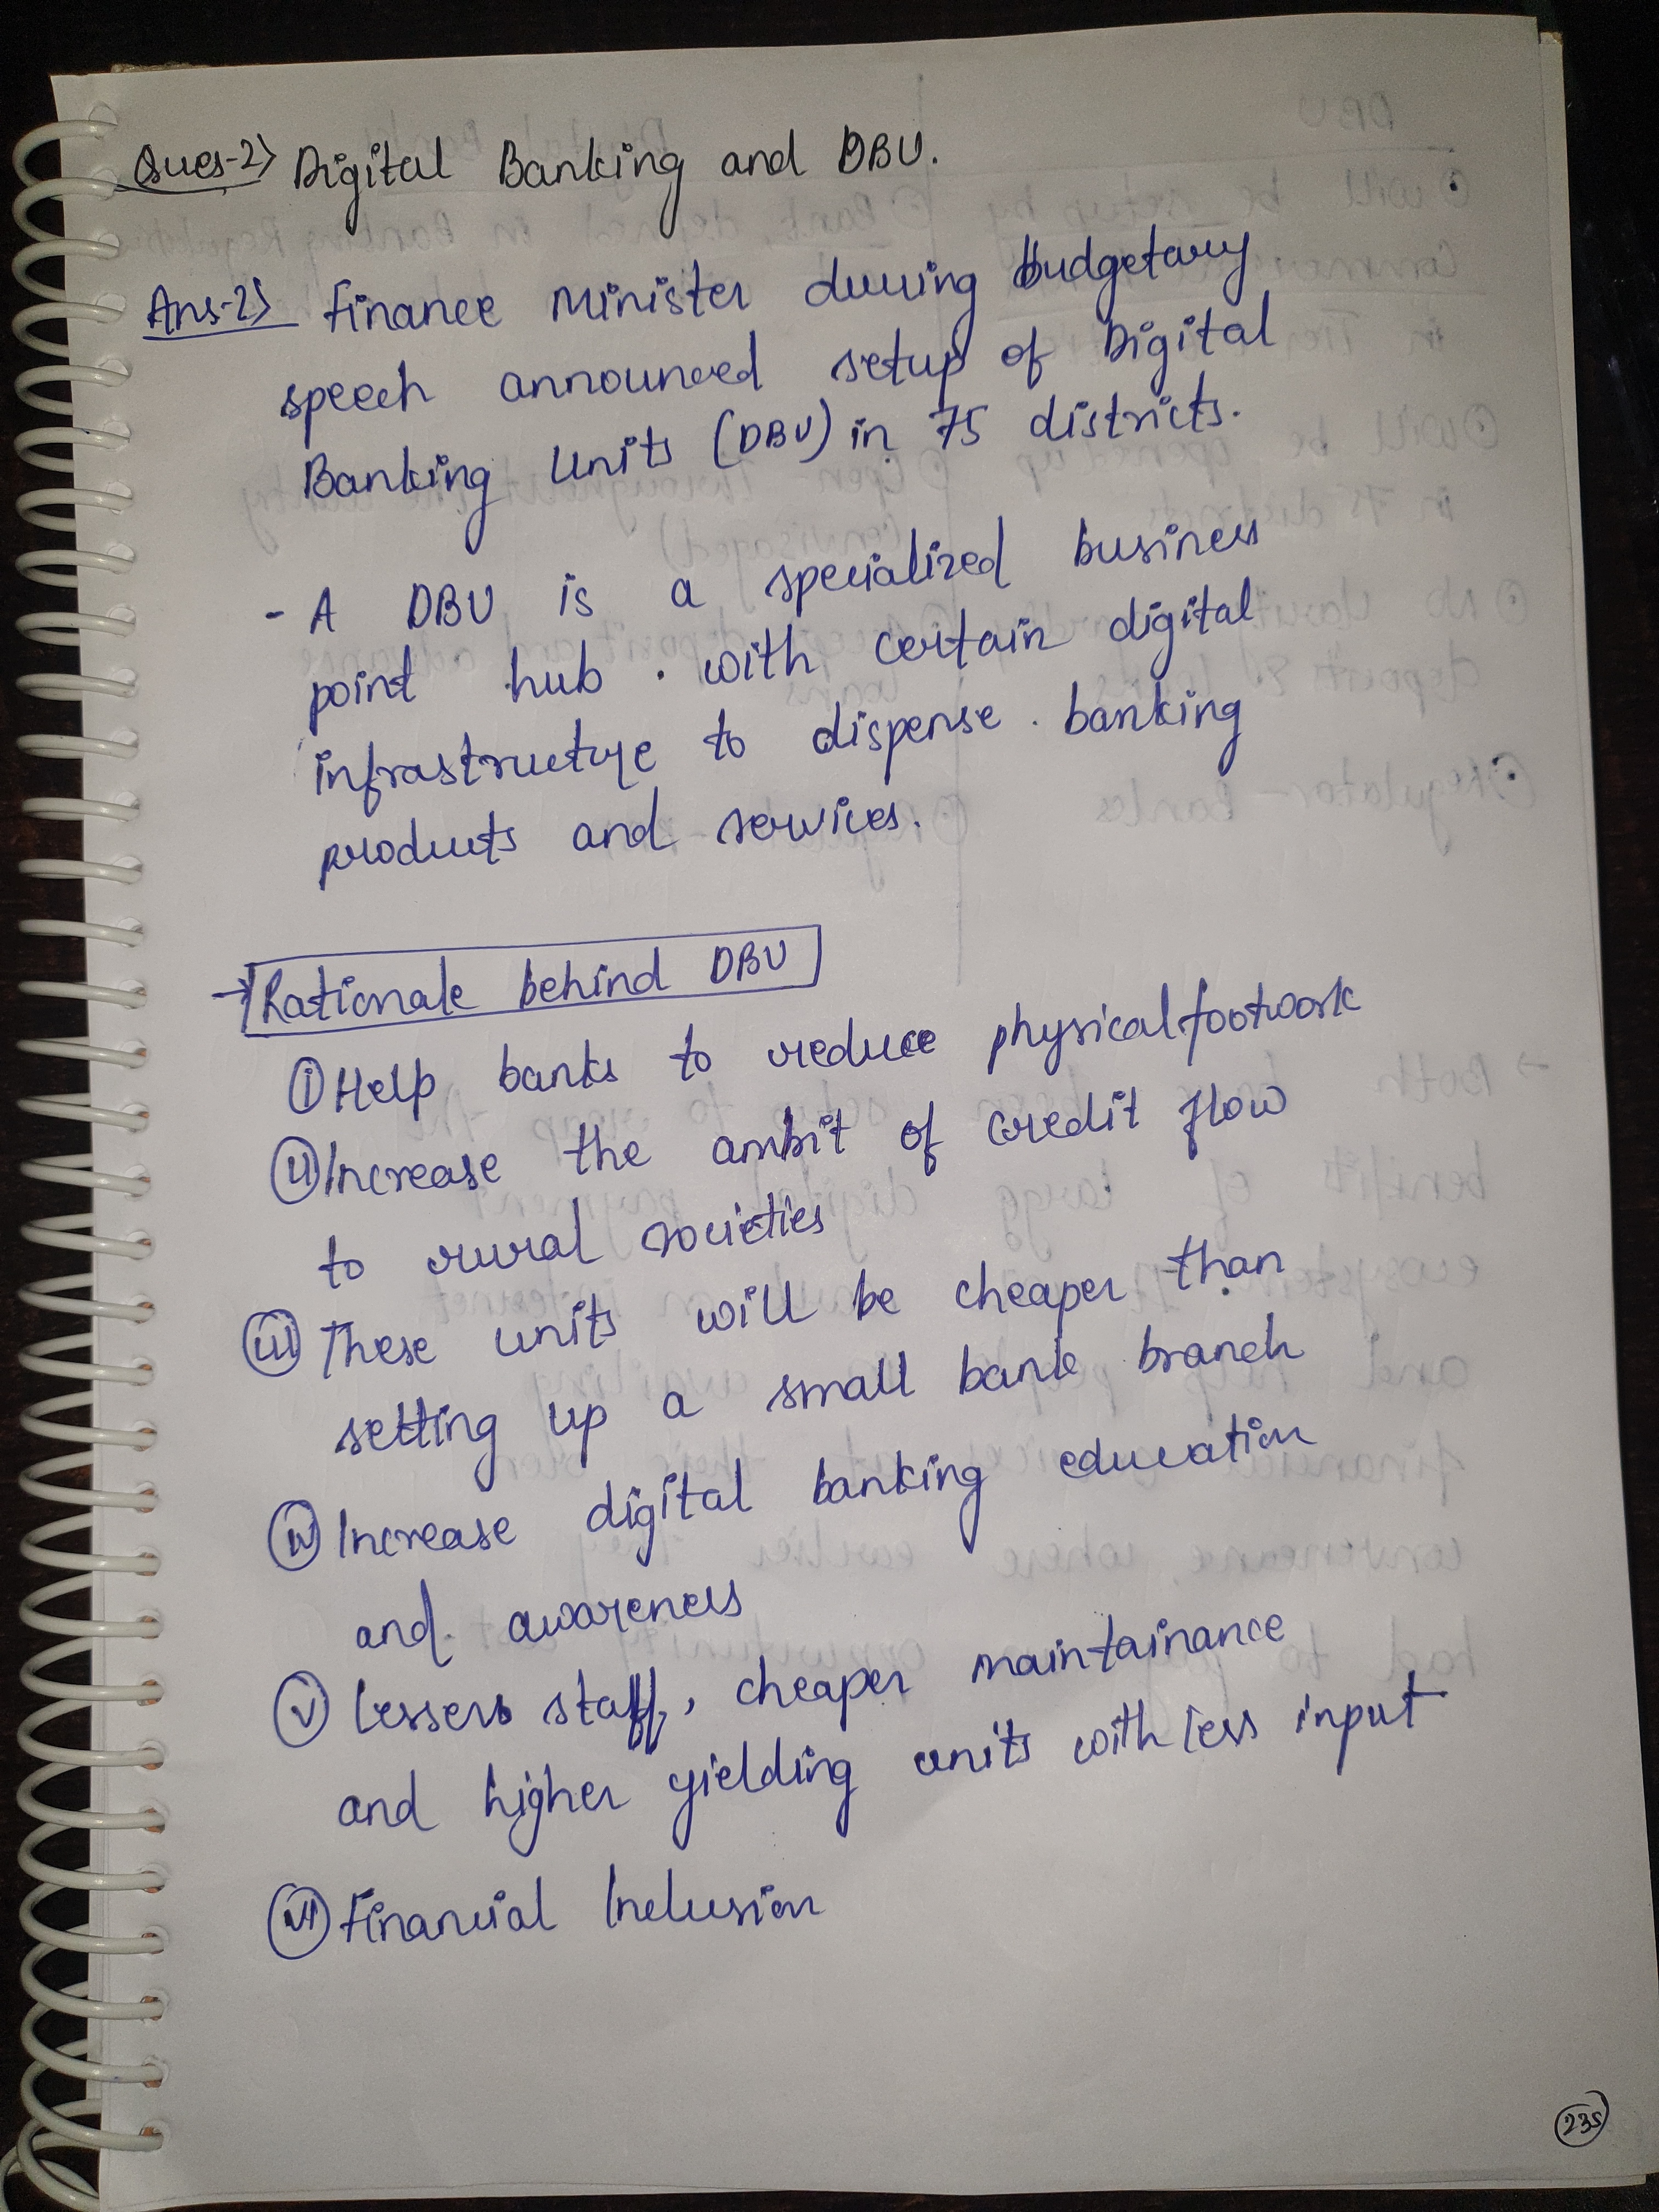 Ques-2> Digital Banking and DBU.
Ans-2> Finance Minister during budgetary
speech announced setup of Digital
Banking Units (DBU) in 75 districts.
- A DBU is a specialized business
point hub with certain digital
infrastructure to dispense banking
products and services.
→ Rationale behind DBU
(i) Help banks to reduce physical footwork
(ii) Increase the ambit of credit flow
to rural societies
(iii) These units will be cheaper than
setting up a small bank branch
(iv) Increase digital banking education
and awareness
(v) Lessers staff, cheaper maintainance
and higher yielding units with less input
(vi) Financial Inclusion
235